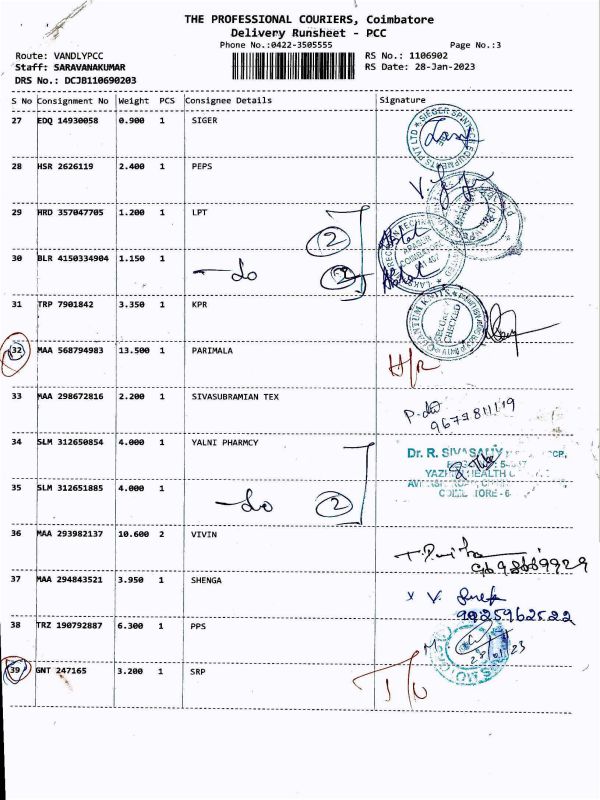 THE PROFESSIONAL COURIERS, Coimbatore
Delivery Runsheet - PCC
Phone No.:0422-3505555 Page No.:3
Route: VANDLYPCC RS No.: 1106902
Staff: SARAVANAKUMAR RS Date: 28-Jan-2023
DRS No.: DCJB110690203
S No Consignment No Weight PCS Consignee Details Signature
27 EDQ 14930058 0.900 1 SIGER
28 HSR 2626119 2.400 1 PEPS
29 HRD 357047705 1.200 1 LPT
2
30 BLR 4150334904 1.150 1 do 2
31 TRP 7901842 3.350 1 KPR
QUANTUM KNITS
SECURITY CHECKED
32 MAA 568794983 13.500 1 PARIMALA
33 MAA 298672816 2.200 1 SIVASUBRAMIAN TEX
34 SLM 312650854 4.000 1 YALNI PHARMCY
Dr. R.
35 SLM 312651885 4.000 1 do 2
36 MAA 293982137 10.600 2 VIVIN
37 MAA 294843521 3.950 1 SHENGA
9925962522
38 TRZ 190792887 6.300 1 PPS
39 GNT 247165 3.200 1 SRP